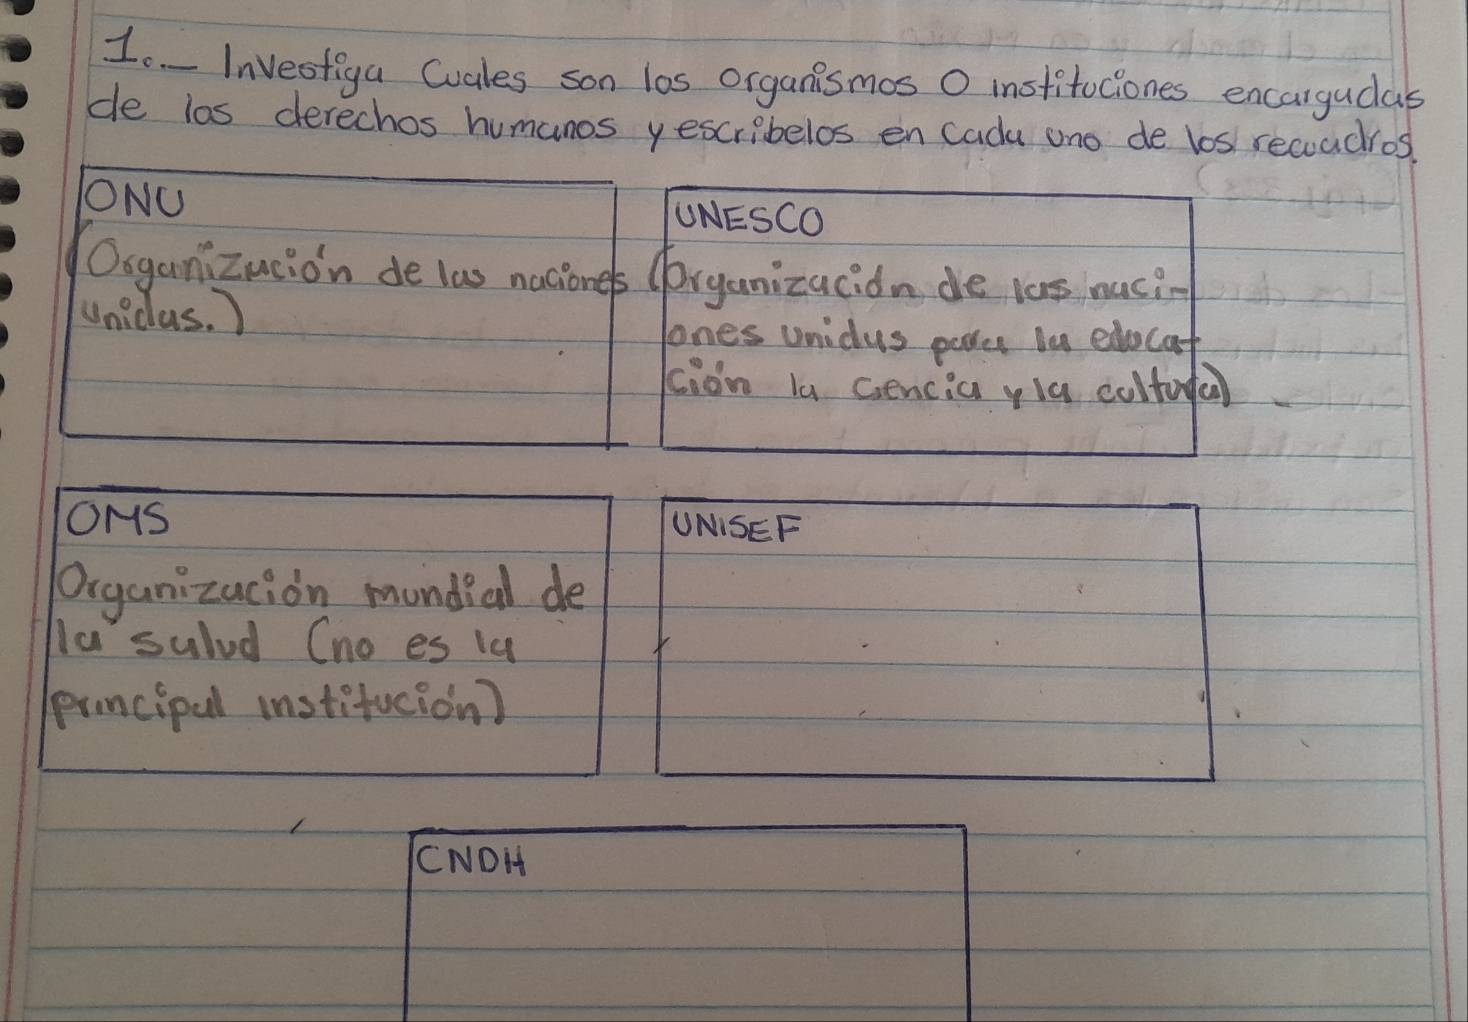 1.- Investiga Cuales son los organismos O instituciones encargadas
de los derechos humanos y escribelos en cada uno de los recuadros.
ONU
(Organización de las naciones
unidas.)
UNESCO
(Organización de las naci-
ones unidas para la educa-
ción la ciencia y la cultura)
OMS
Organización mundial de
la salud (no es la
principal institución)
UNISEF
CNDH